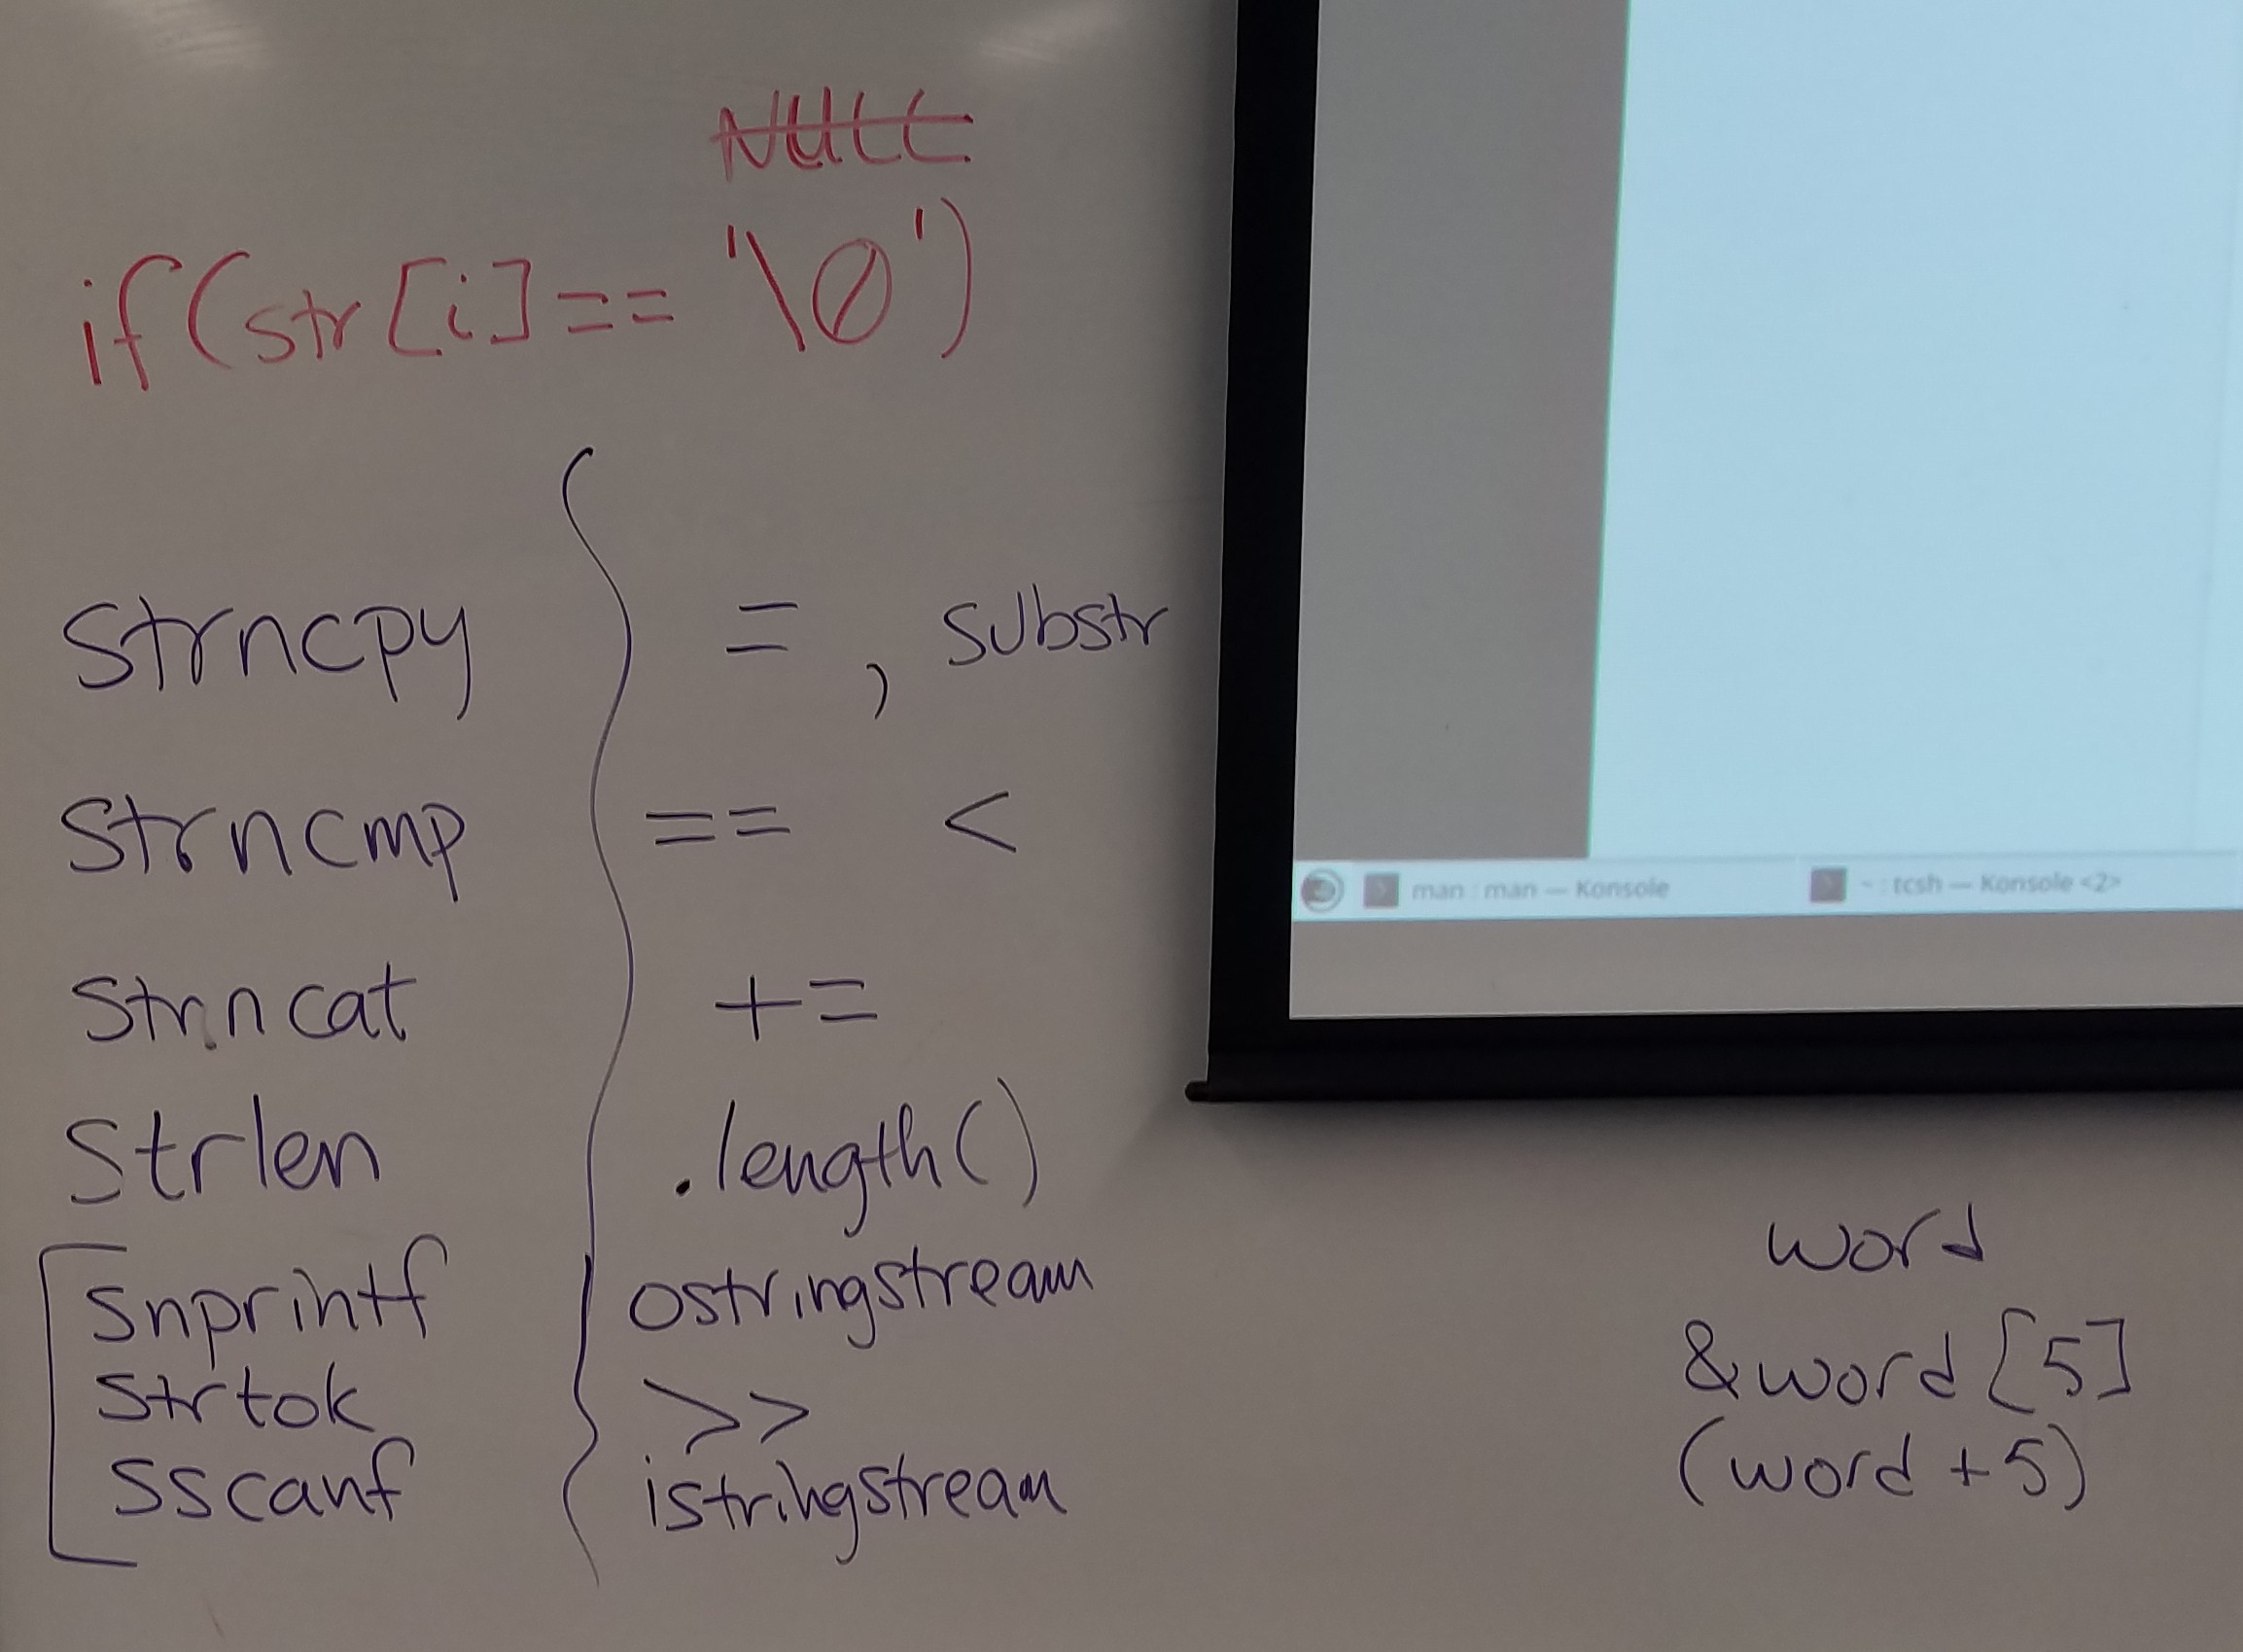 NULL
if(str[i]== '\0')
strncpy = , substr
strncmp == <
strncat +=
strlen .length()
snprintf ostringstream
strtok >>
sscanf istringstream
man : man — Konsole
~ : tcsh — Konsole <2>
word
&word[5]
(word+5)